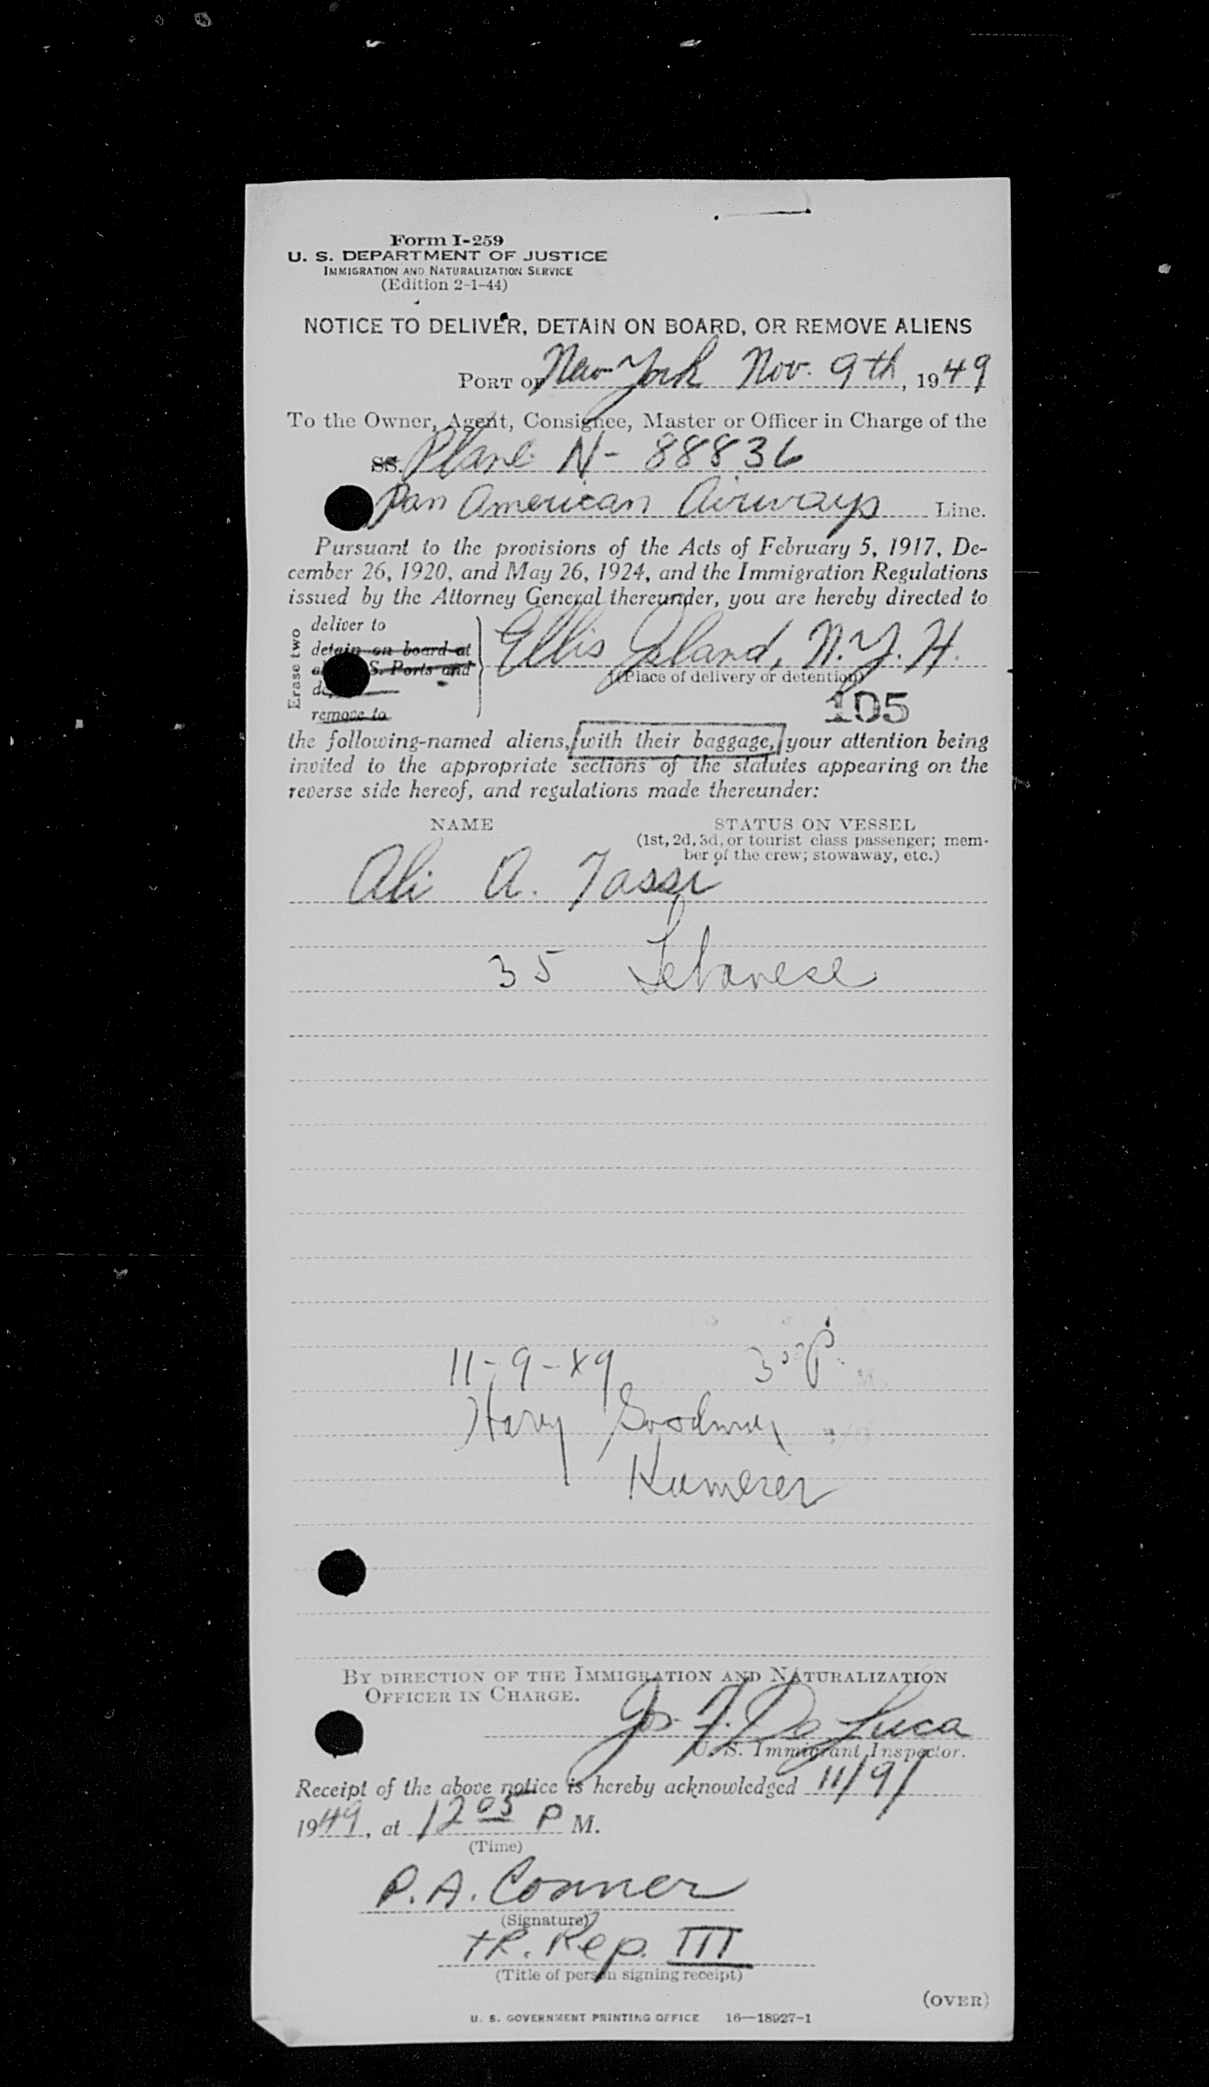 Form I-259
U. S. DEPARTMENT OF JUSTICE
IMMIGRATION AND NATURALIZATION SERVICE
(Edition 2-1-44)
NOTICE TO DELIVER, DETAIN ON BOARD, OR REMOVE ALIENS
PORT OF New York Nov. 9th, 1949
To the Owner, Agent, Consignee, Master or Officer in Charge of the
SS. Plane N-88836
Pan American Airways Line.
Pursuant to the provisions of the Acts of February 5, 1917, De-
cember 26, 1920, and May 26, 1924, and the Immigration Regulations
issued by the Attorney General thereunder, you are hereby directed to
Erase two
deliver to
detain on board at
S. Ports and
remove to
Ellis Island, N.Y.H.
(Place of delivery or detention)
105
the following-named aliens, [with their baggage,] your attention being
invited to the appropriate sections of the statutes appearing on the
reverse side hereof, and regulations made thereunder:
NAME STATUS ON VESSEL
(1st, 2d, 3d, or tourist class passenger; mem-
ber of the crew; stowaway, etc.)
Ali A. Tassi
35 Lebanese
11-9-49
Harry
BY DIRECTION OF THE IMMIGRATION AND NATURALIZATION
OFFICER IN CHARGE.
Jos. F. De Luca
U. S. Immigrant Inspector.
Receipt of the above notice is hereby acknowledged 11/9/
1949, at 12 05 P M.
(Time)
P. A. Conner
(Signature)
Rep. III
(Title of person signing receipt)
(OVER)
U. S. GOVERNMENT PRINTING OFFICE 16—18927-1